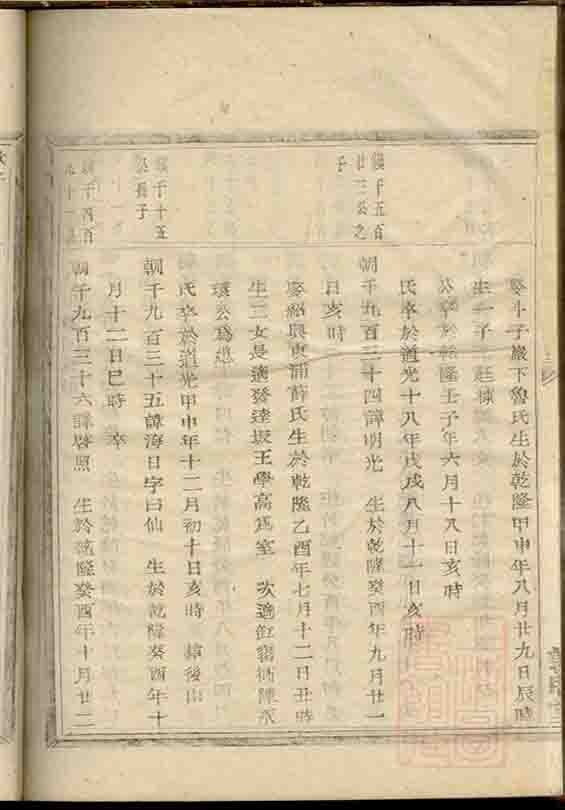 娶斗子巖下魯氏生於乾隆甲申年八月廿九日辰時
生一子 廷棟
公卒於乾隆壬子年六月十八日亥時
氏卒於道光十八年戊戌八月十一日亥時
錢千五百廿三公之子
朝千九百三十四諱明光 生於乾隆癸酉年九月廿一
日亥時
娶紹興東浦薛氏生於乾隆乙酉年七月十二日丑時
生二女長適發達坂王學高爲室 次適 陳永
璞公爲
氏卒於道光甲申年十二月初十日亥時 後山
千十五 長子
朝千九百三十五諱海日字曰仙 生於乾隆癸酉年十
月十二日巳時 卒
千四百九十一
朝千九百三十六諱啓照 生於乾隆癸酉年十月廿二